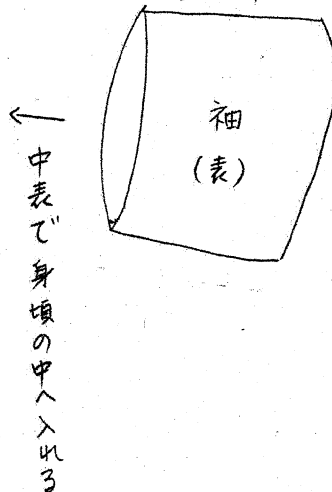 袖
(表)
中表で身頃の中へ入れる